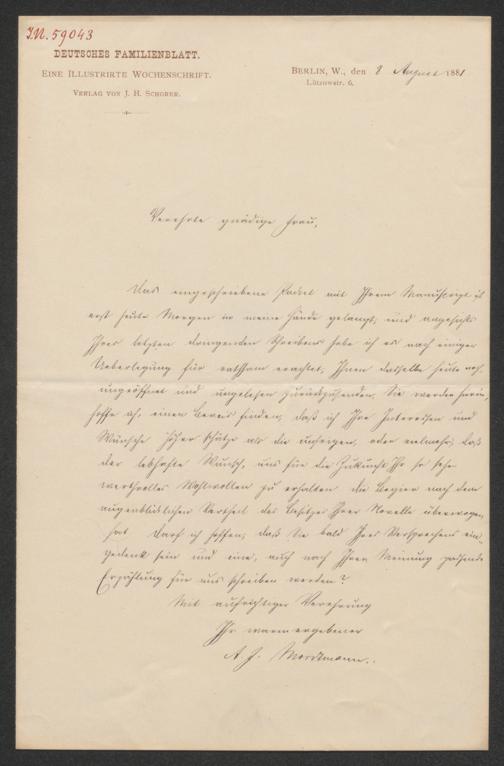 I.N. 59043
DEUTSCHES FAMILIENBLATT.
EINE ILLUSTRIRTE WOCHENSCHRIFT.
VERLAG VON J. H. SCHORER.
BERLIN, W., den 8 August 1881
Lützowstr. 6.
Verehrte gnädige Frau,
Das eingeschriebene Packet mit Ihrem Manuscript ist
erst heute Morgen in meine Hände gelangt, und angesichts
Ihres letzten dringenden Schreibens habe ich es nach einiger
Ueberlegung für rathsam erachtet, Ihnen dasselbe heute noch
uneröffnet und ungelesen zurückzusenden. Sie werden hierin,
hoffe ich, einen Beweis finden, daß ich Ihre Interessen und
Wünsche höher schätze als die unsrigen, oder vielmehr, daß
der lebhafte Wunsch, uns für die Zukunft Ihr so sehr
werthvolles Wohlwollen zu erhalten die Begier nach dem
augenblicklichen Vortheil des Besitzes Ihrer Novelle überwogen
hat. Darf ich hoffen, daß Sie bald Ihres Versprechens ein-
gedenk sein und eine, auch nach Ihrer Meinung passende
Erzählung für uns schreiben werden?
Mit aufrichtiger Verehrung
Ihr warm ergebener
A. J. Mordtmann.